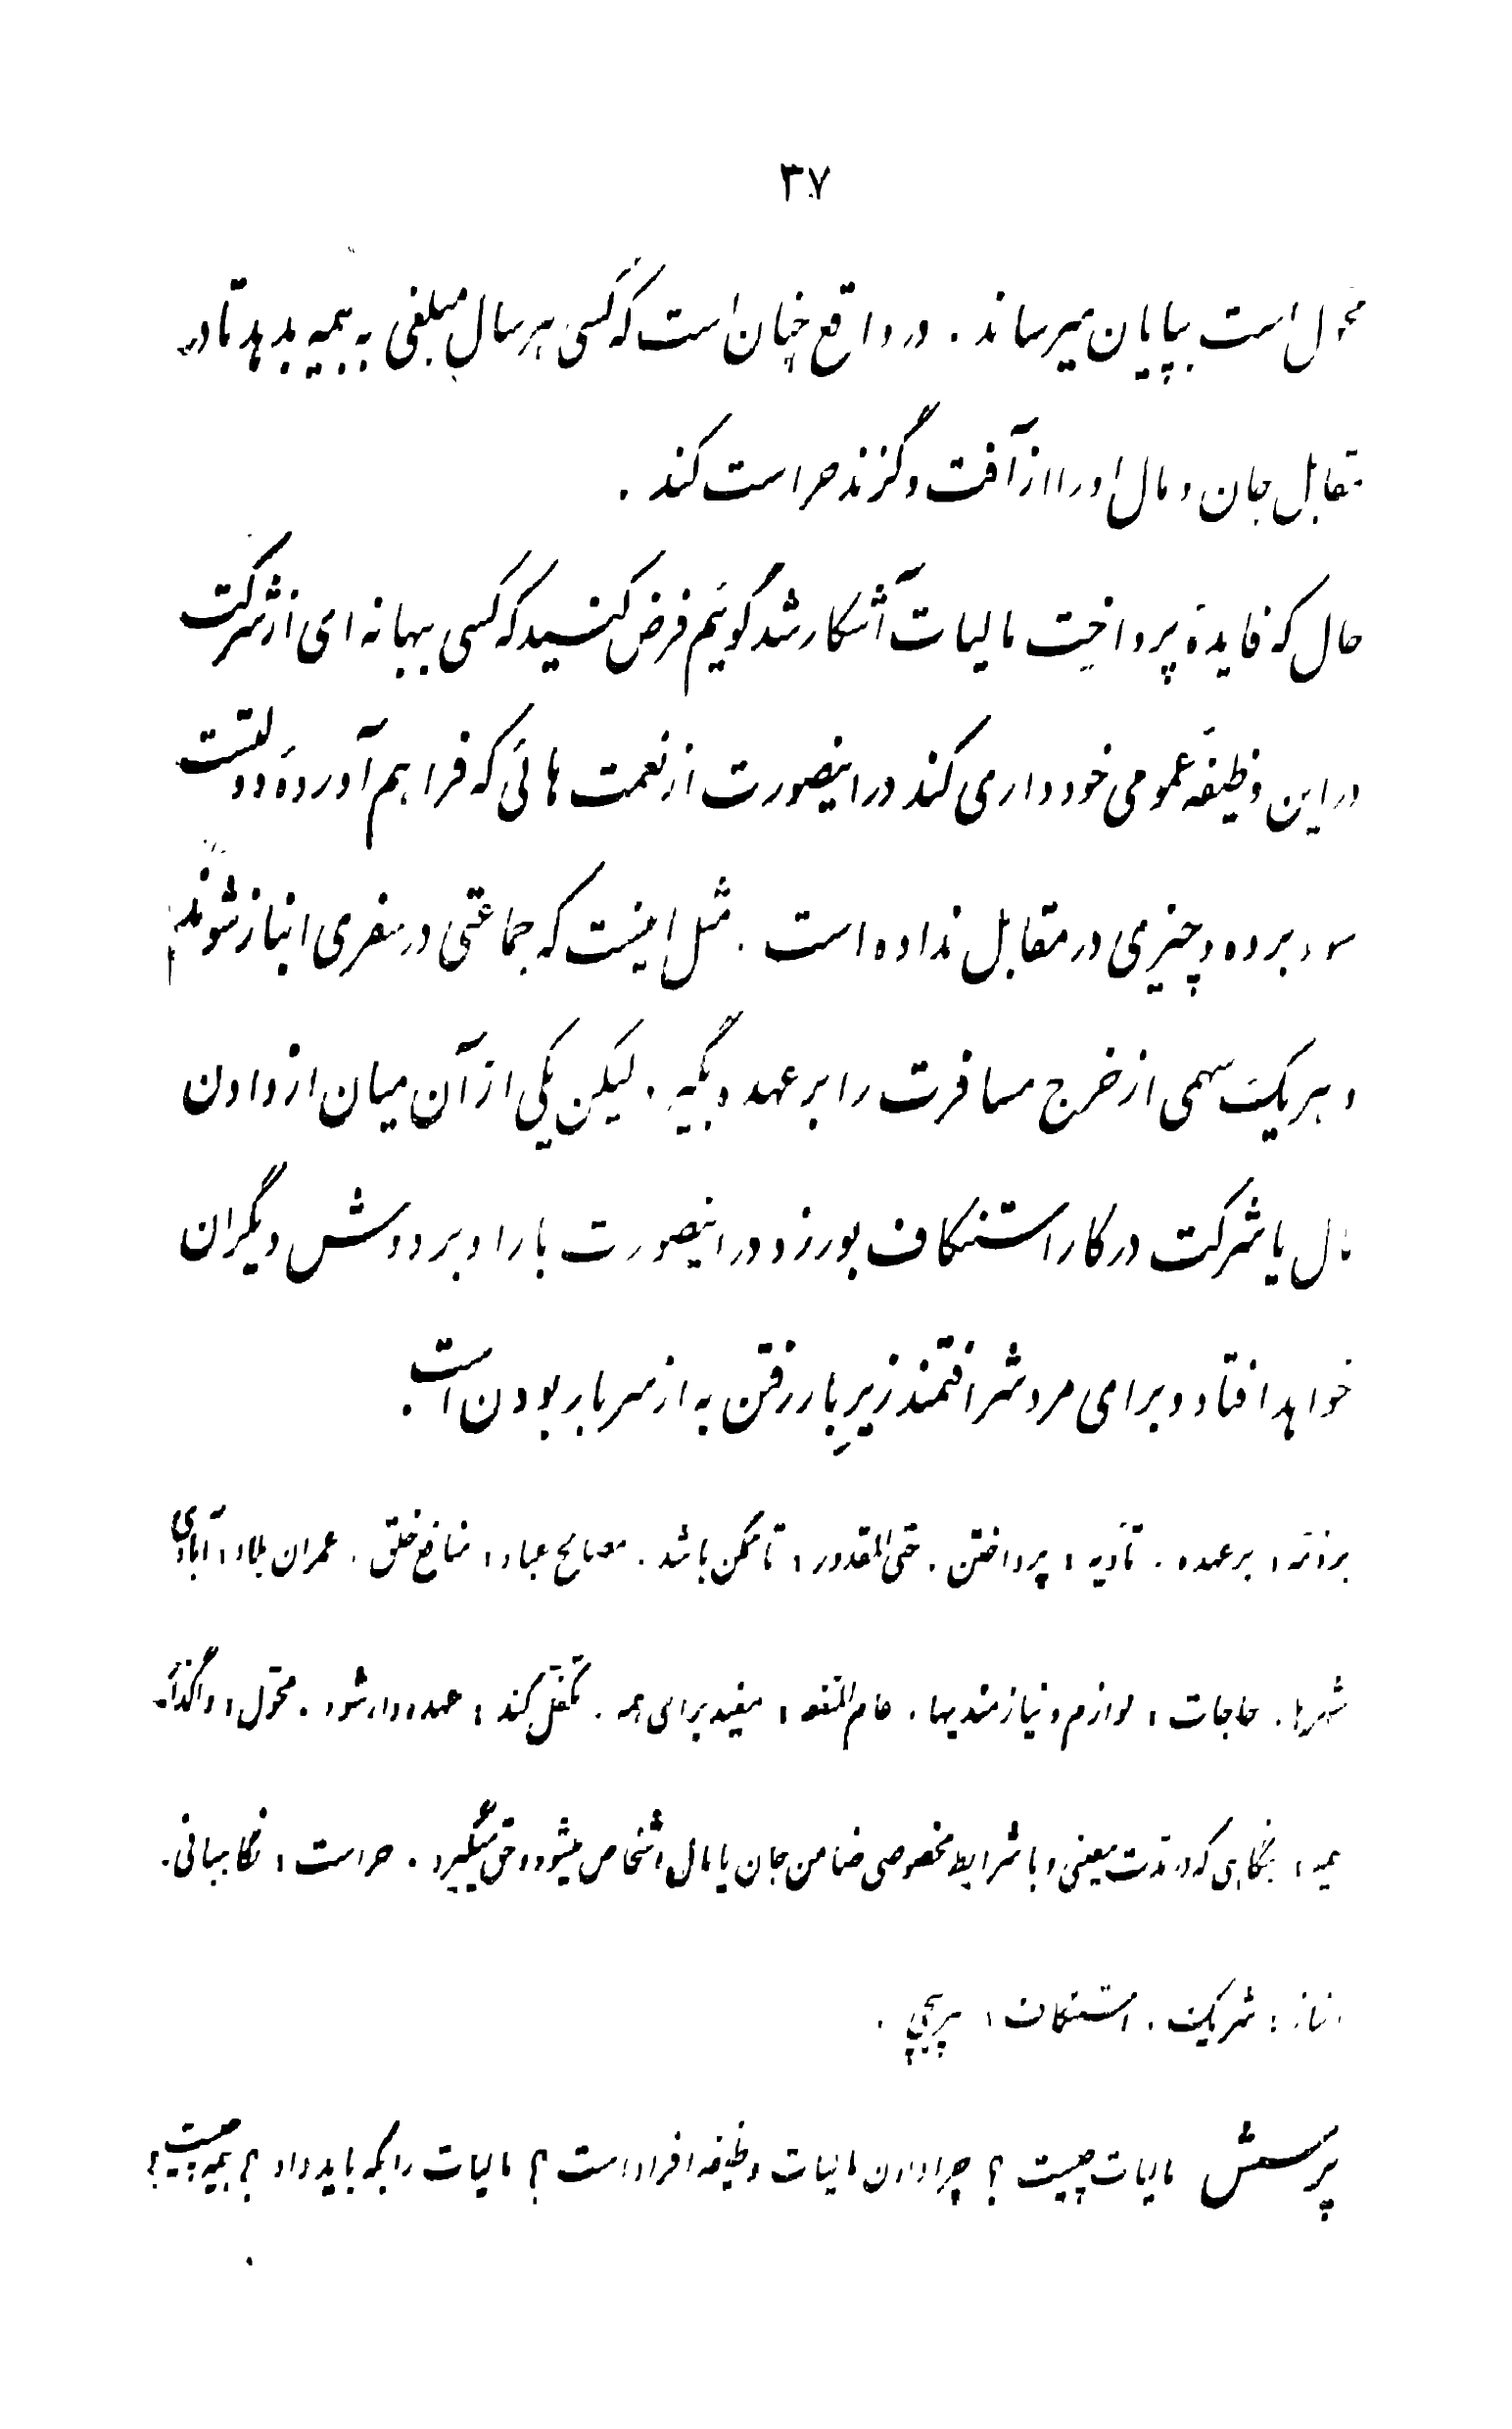 ۳۷
محول است بپایان میرساند . در واقع چنان است که کسی هر سال مبلغی به بیمه بدهد تا در
مقابل جان و مال او را از آفت و گزند حراست کند .
حال که فایدهٔ پرداخت مالیات آشکار شد گوئیم فرض کنید که کسی ببهانه‌ای از شرکت
در این وظیفهٔ عمومی خودداری کند در اینصورت از نعمت هائی که فراهم آوردهٔ دولتست
سود برده و چیزی در مقابل نداده است . مثل اینست که جماعتی در سفری انباز شوند
و هر یک سهمی از خرج مسافرت را بر عهده بگیرد . لیکن یکی از آن میان از دادن
مال یا شرکت در کار استنکاف بورزد در اینصورت بار او بر دوش دیگران
خواهد افتاد و برای مرد شرافتمند زیرِ بار رفتن به از سربار بودن است .
بر ذمه : بر عهده . تأدیه : پرداختن . حتی المقدور : تا ممکن باشد . مصالح عباد : منافع خلق . عمران بلاد : آبادی
شهرها . حاجات : لوازم و نیازمندیها . عام المنفعه : مفید برای همه . تکفّل کند : عهده‌دار شود . محوّل : واگذار
بیمه : بنگاهی که در مدت معینی و با شرایط مخصوصی ضامن جان یا مال اشخاص میشود و حق میگیرد . حراست : نگاهبانی .
انباز : شریک . استنکاف : سرپیچی .
پرسش مالیات چیست ؟ چرا دادن مالیات وظیفه افراد است ؟ مالیات را بکه باید داد ؟ بیمه چیست ؟